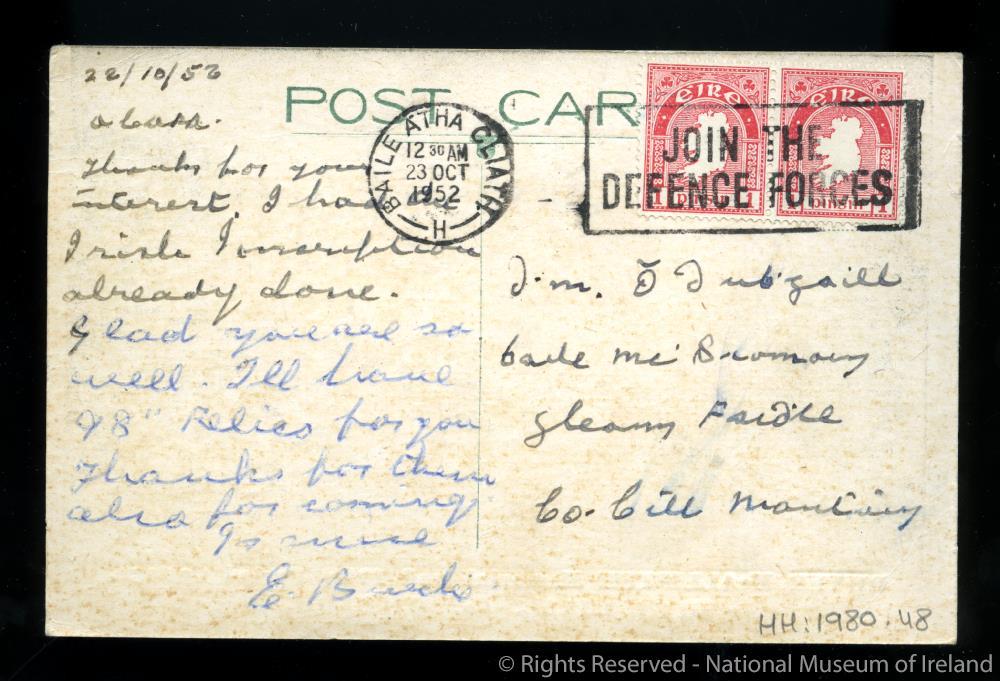 22/10/52
POST CAR
a Cara.
Thanks for your
interest. I have
Irish Inscription
already done.
Glad you are so
well. I'll have
98" Relics for you
Thanks for them
also for coming.
Is mise
E.
BAILE ATHA CLIATH
12 30 AM
23 OCT
1952
H
ÉIRE
ÉIRE
JOIN THE
DEFENCE FORCES
1 pinginn 1
pinginn 1
Ó
Mc
Co. Cill Mantáin
HH:1980.48
© Rights Reserved - National Museum of Ireland